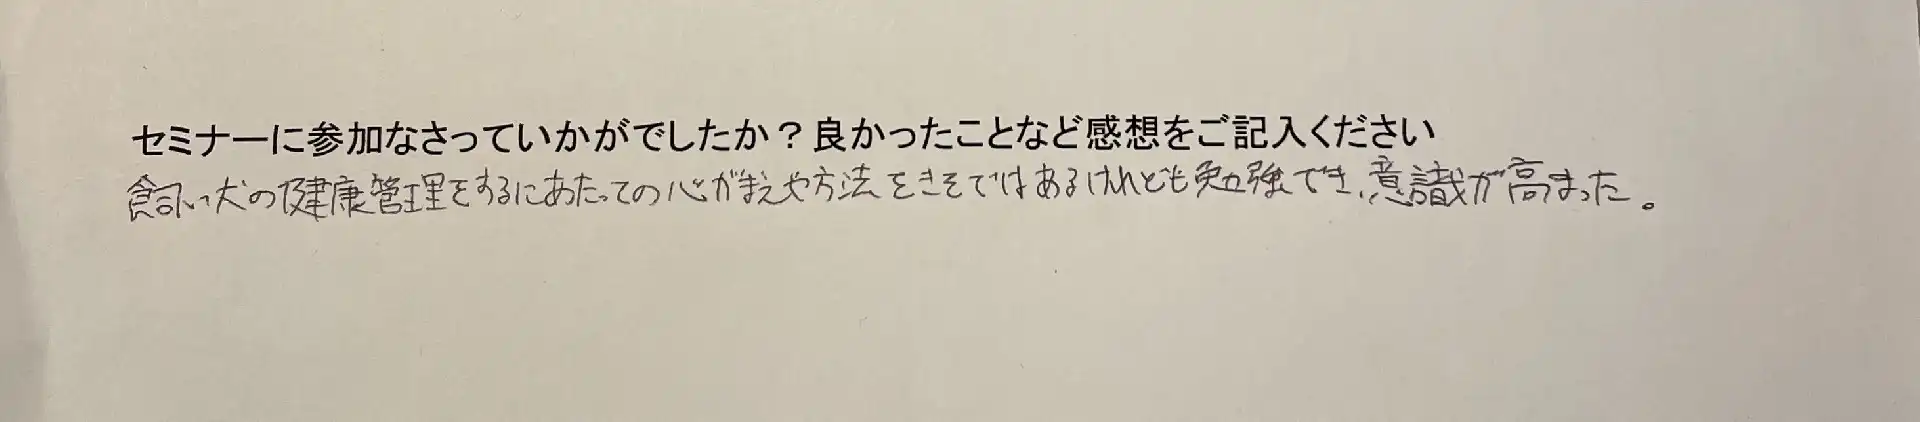 セミナーに参加なさっていかがでしたか？良かったことなど感想をご記入ください
飼い犬の健康管理をするにあたっての心がまえや方法をきそではあるけれども勉強でき、意識が高まった。